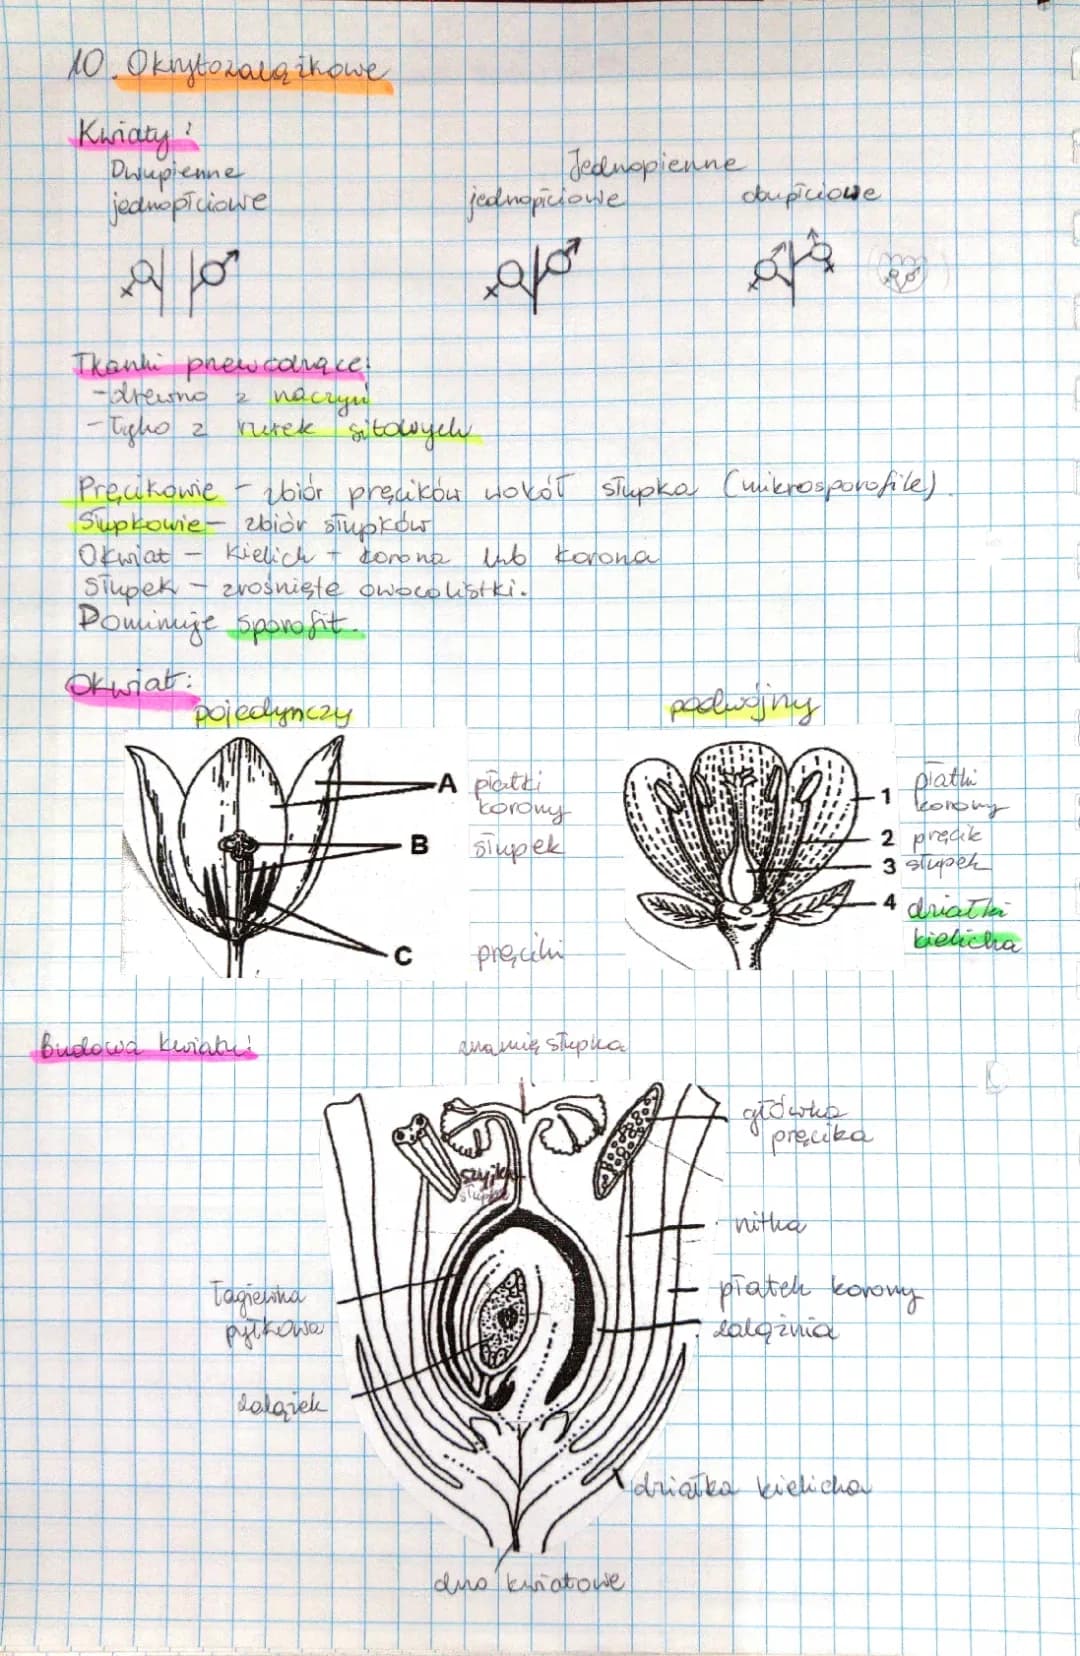 10. Okrytozalążkowe
Kwiaty:
Dwupienne
jednopłciowe
Jednopienne
jednopłciowe
obupłciowe
Tkanki przewodzące:
- drewno z naczyń
- łyko z rurek sitowych
Pręcikowie - zbiór pręcików wokół słupka (mikrosporofile).
Słupkowie - zbiór słupków
Okwiat - Kielich + korona lub korona
Słupek - zrośnięte owocolistki.
Dominuje sporofit.
Okwiat:
pojedynczy
podwójny
A płatki
korony
B słupek
C pręciki
1 płatki
korony
2 pręcik
3 słupek
4 działki
kielicha
Budowa kwiatu:
znamię słupka
główka
pręcika
szyjka
słupka
nitka
łagiewka
pyłkowa
płatek korony
zalążnia
zalążek
działka kielicha
dno kwiatowe